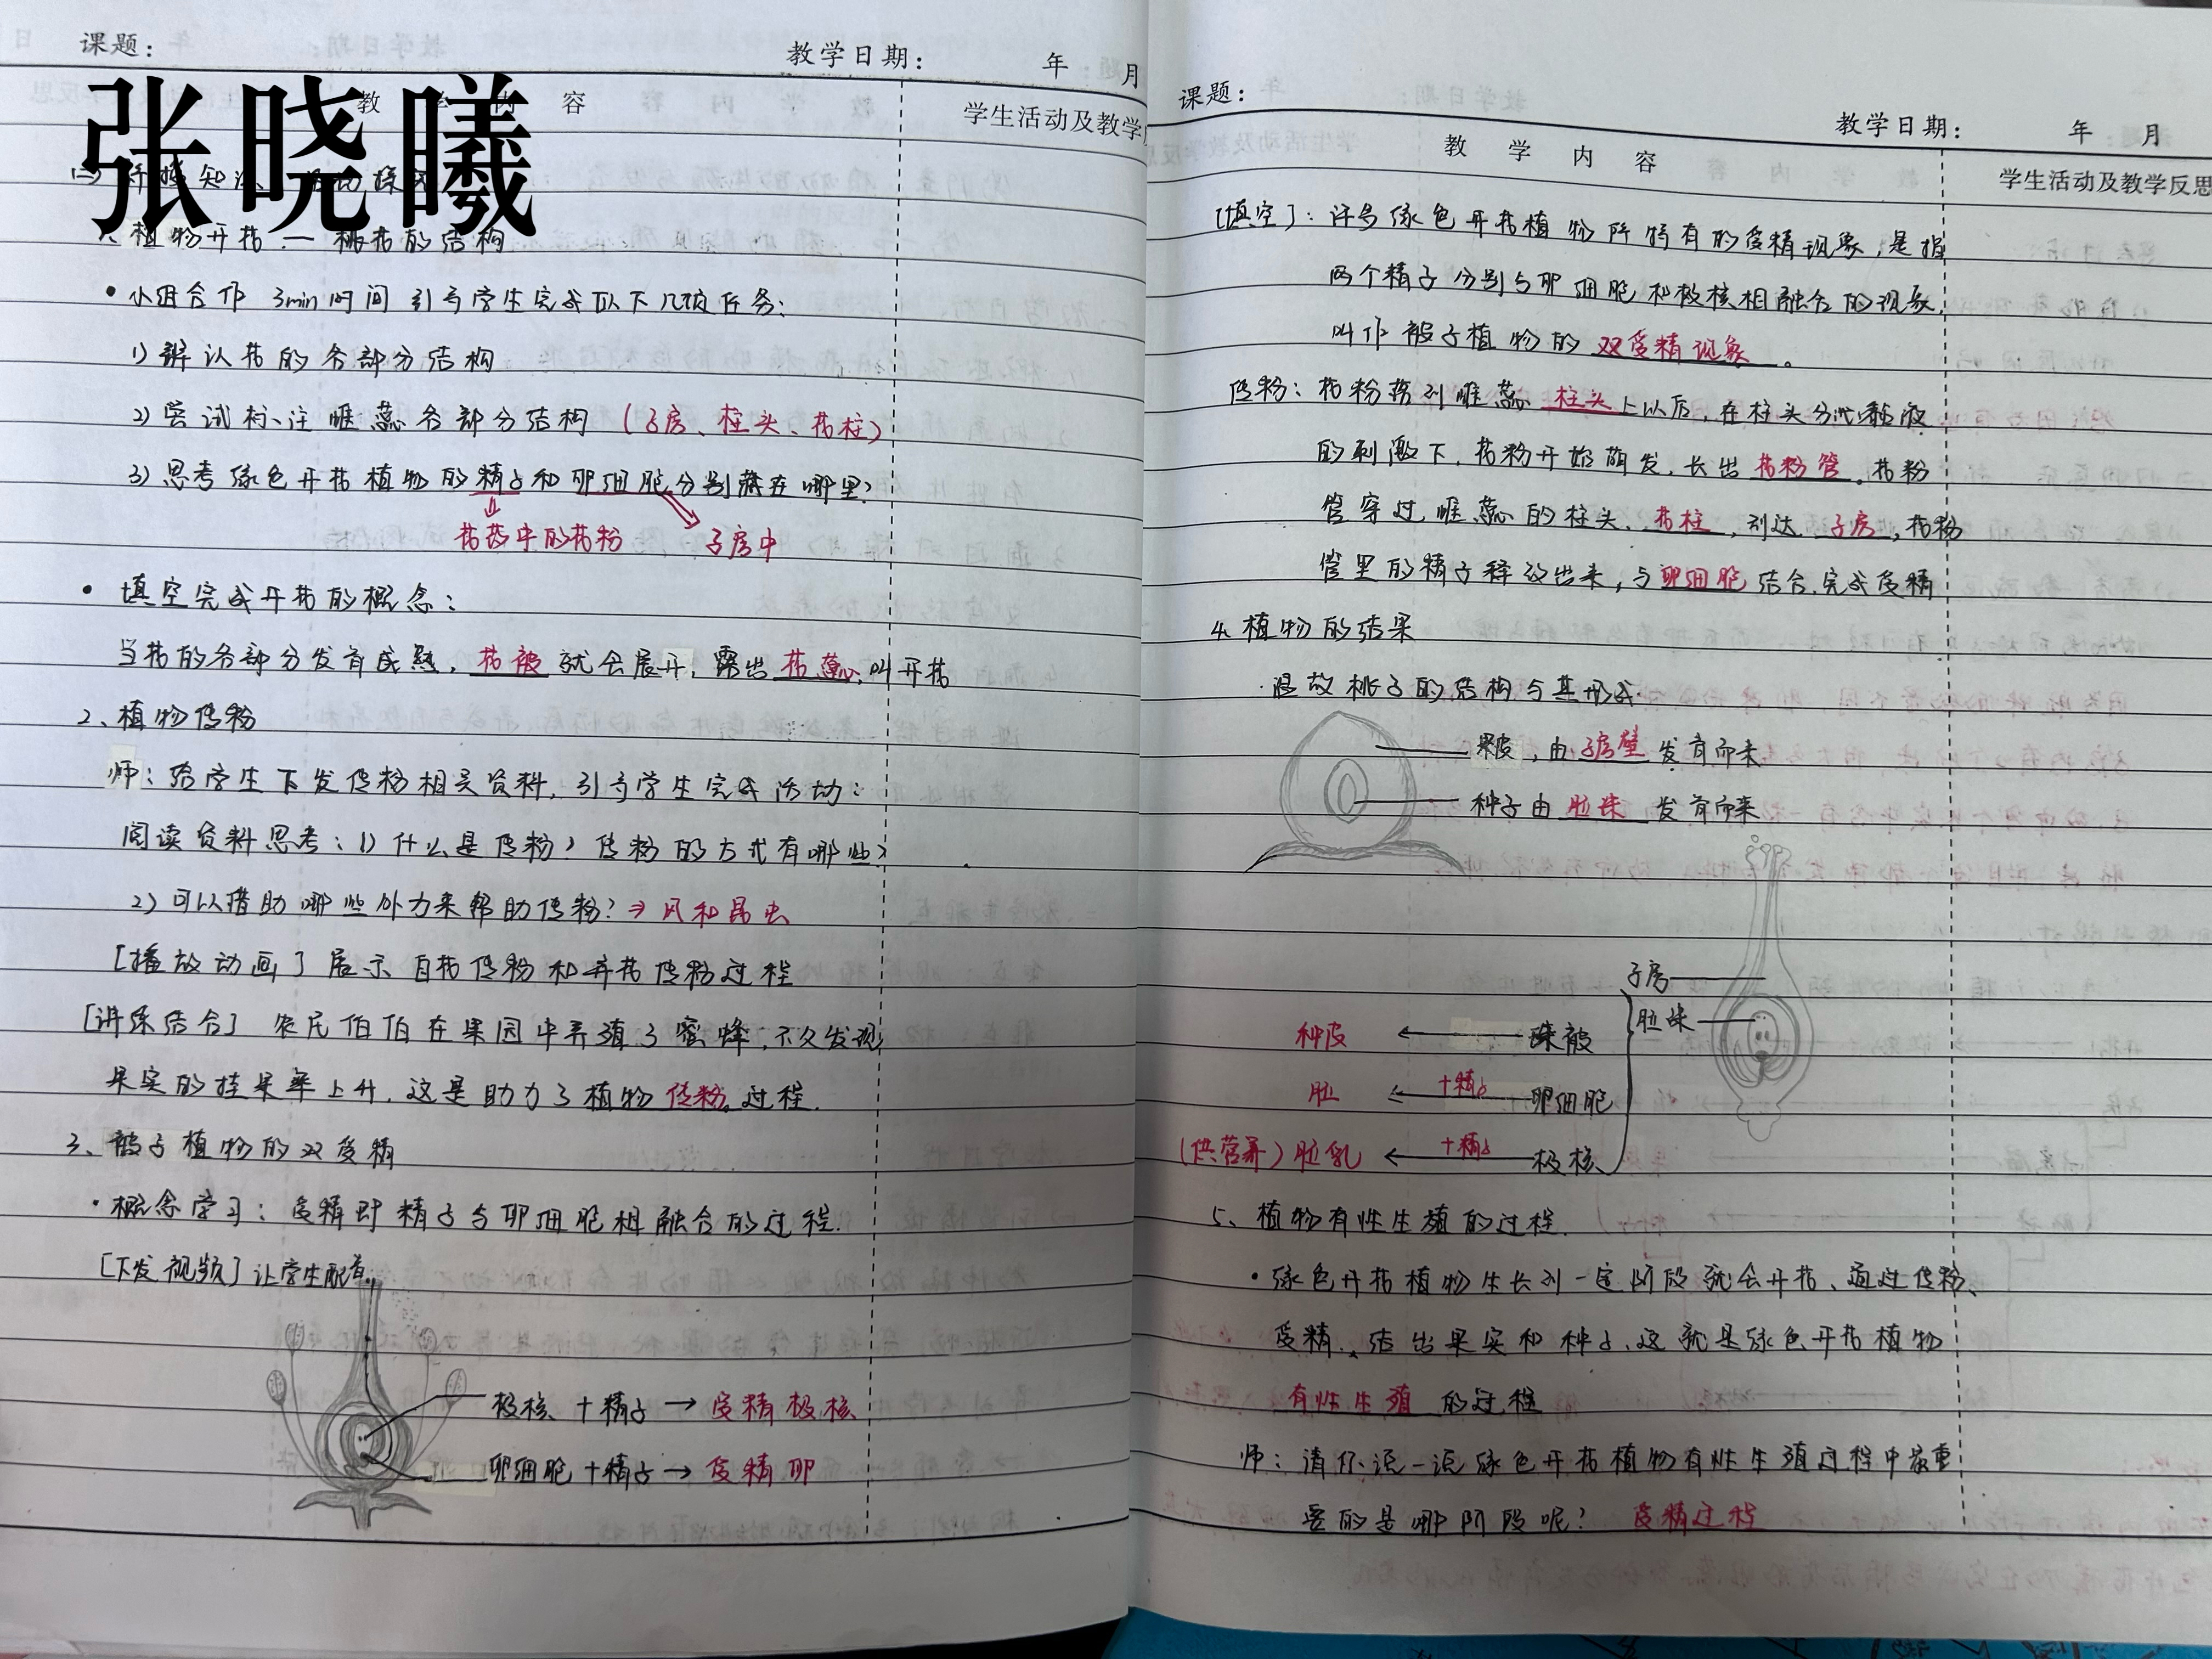 课题：
教学日期： 年 月
教 学 内 容
学生活动及教学
张晓曦
1、植物开花 — 桃花的结构
• 小组合作 3min时间 引导学生完成以下几项任务：
1) 辨认花的各部分结构
2) 尝试标注雌蕊各部分结构（子房、柱头、花柱）
3) 思考绿色开花植物的精子和卵细胞分别藏在哪里？
花药中的花粉 子房中
• 填空完成开花的概念：
当花的各部分发育成熟，花被就会展开，露出花蕊，叫开花
2、植物传粉
师：给学生下发传粉相关资料，引导学生完成活动：
阅读资料思考：1) 什么是传粉？传粉的方式有哪些？
2) 可以借助哪些外力来帮助传粉？⇒ 风和昆虫
[播放动画] 展示自花传粉和异花传粉过程
[讲练结合] 农民伯伯在果园中养殖了蜜蜂，不久发现
果实的挂果率上升，这是助力了植物传粉过程.
3、被子植物的双受精
• 概念学习：受精即精子与卵细胞相融合的过程.
[下发视频] 让学生配音.
极核 + 精子 → 受精极核
卵细胞 + 精子 → 受精卵
课题：
教学日期： 年 月
教 学 内 容
学生活动及教学反思
[填空]：许多绿色开花植物所特有的受精现象，是指
两个精子分别与卵细胞和极核相融合的现象，
叫作被子植物的双受精现象。
传粉：花粉落到雌蕊柱头上以后，在柱头分泌黏液
的刺激下，花粉开始萌发，长出花粉管。花粉
管穿过雌蕊的柱头、花柱，到达子房，花粉
管里的精子释放出来，与卵细胞结合，完成受精
4、植物的结果
·温故桃子的结构与其形成.
果皮，由子房壁发育而来
种子由胚珠发育而来
子房
胚珠
种皮 ← 珠被
胚 ← +精子 卵细胞
（供营养）胚乳 ← +精子 极核
5、植物有性生殖的过程.
• 绿色开花植物生长到一定阶段就会开花、通过传粉、
受精、结出果实和种子、这就是绿色开花植物
有性生殖的过程
师：请你说一说绿色开花植物有性生殖过程中最重
要的是哪阶段呢？ 受精过程